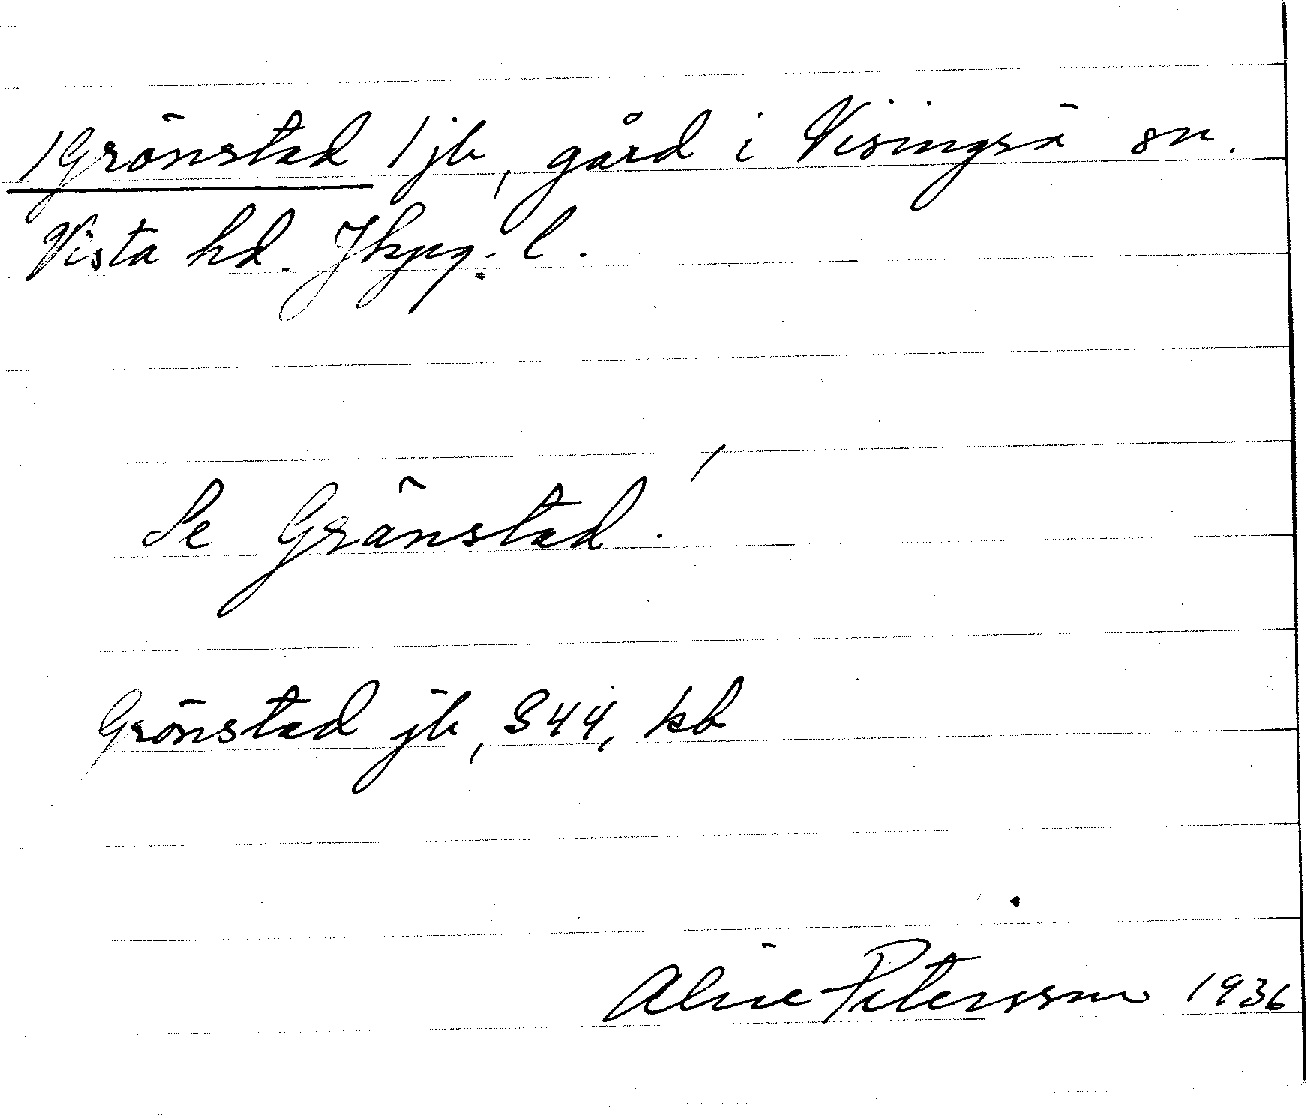 /Grönstad/ jb, gård i Visingsö sn.
Vista hd. Jkpg. l.
Se Gränstad!
Grönstad jb, S44, kb
Alice Petersson 1936